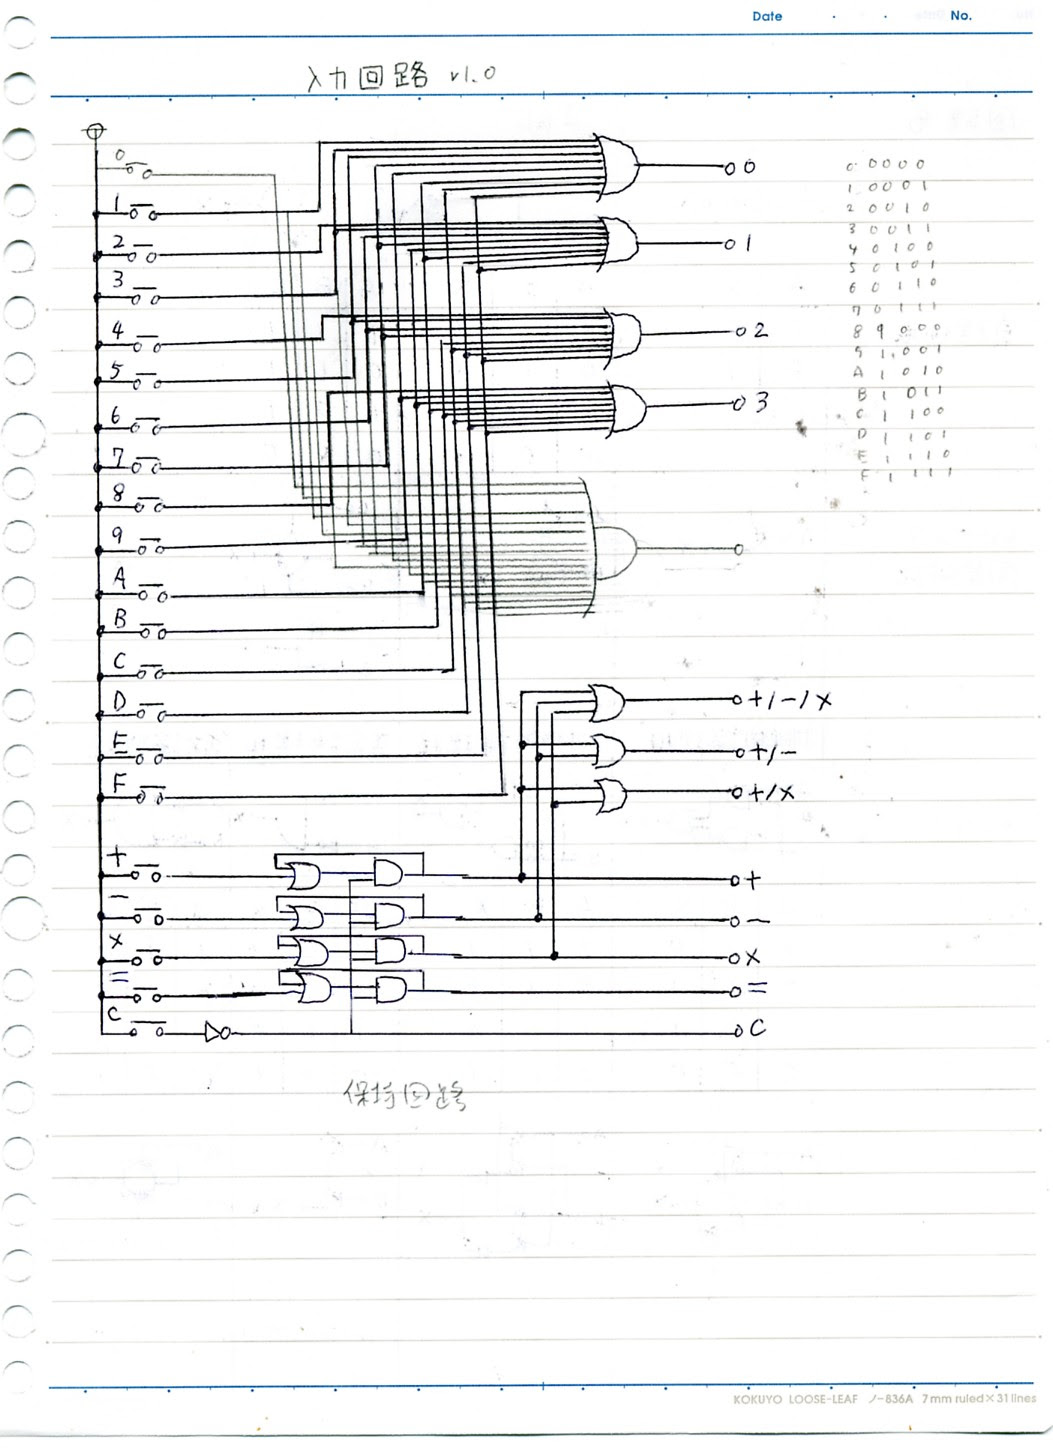 Date No.
入力回路 v1.0
0
1
2
3
4
5
6
7
8
9
A
B
C
D
E
F
+
-
×
=
C
0
1
2
3
+/-/×
+/-
+/×
+
-
×
=
C
0 0000
1 0001
2 0010
3 0011
4 0100
5 0101
6 0110
7 0111
8 9000
9 1001
A 1010
B 1011
C 1100
D 1101
E 1110
F 1111
保持回路
KOKUYO LOOSE-LEAF ノ-836A 7mm ruled×31 lines